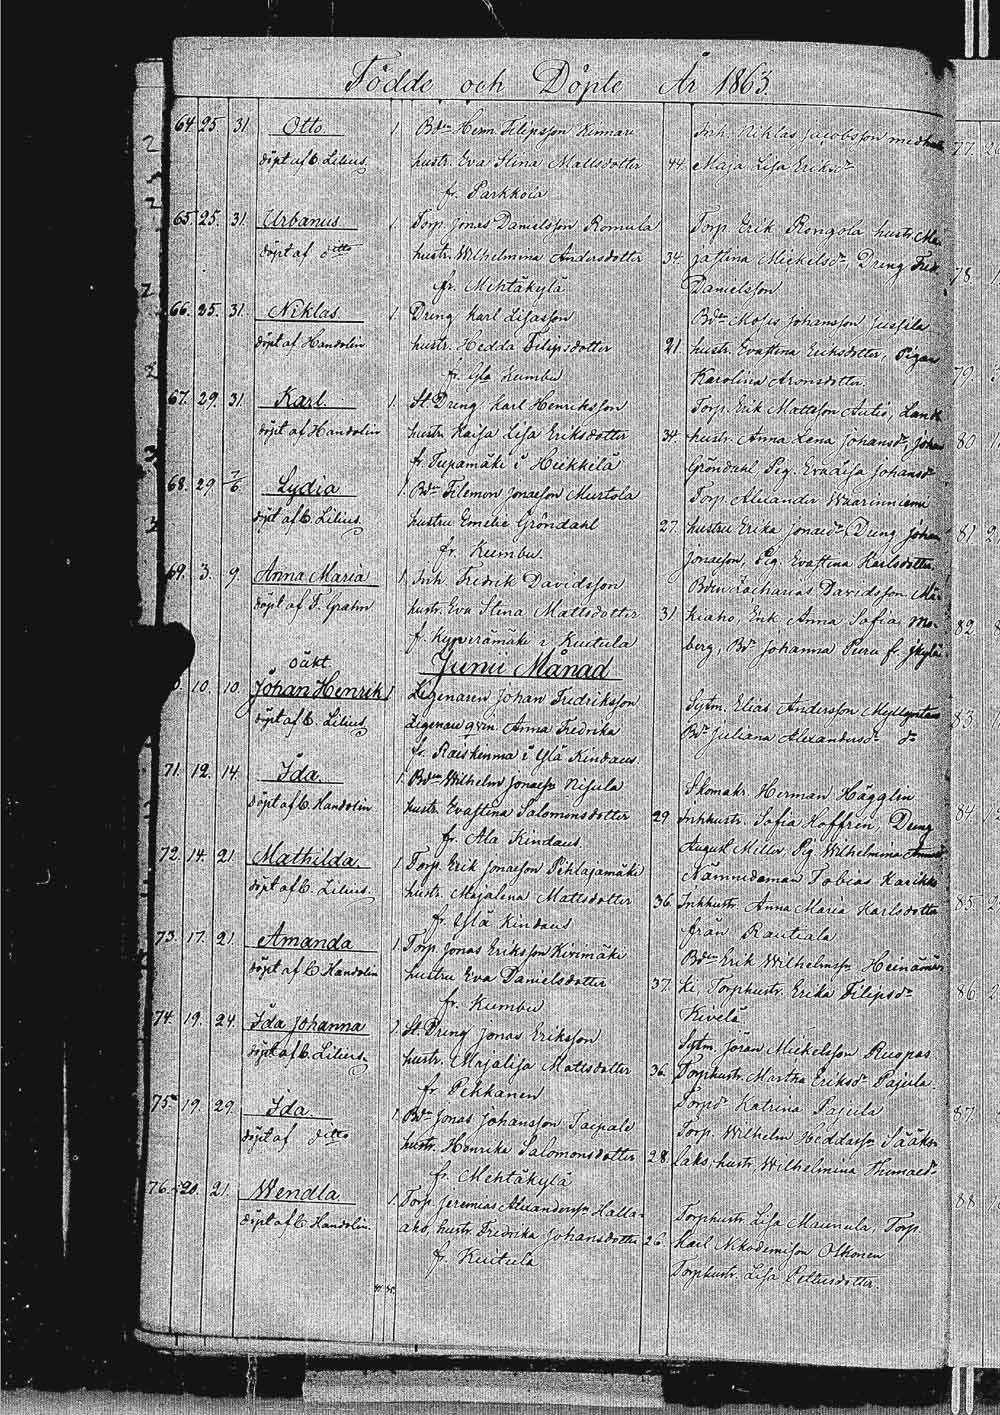 Födde och Döpte År 1863.
64. 25. 31. Otto. 1. Bdn Herm. Filipsson Kinnari Inh. Niklas Jacobsson med hustr.
döpt af C. Lilius hustr. Eva Stina Mattsdotter 44. Maja Lisa Eriksdr
fr. Parkkola
65. 25. 31. Urbanus 1. Torp. Jonas Danielsson Romula Torp. Erik Rongola hustr. Ma-
döpt af ditto hustr. Wilhelmina Andersdotter 34. jastina Mickelsdr, Dreng Fred.
fr. Mehtäkylä Danielsson
66. 25. 31. Niklas. 1. Dreng Karl Lisasson Bdn Moses Johansson Jussila
döpt af Handolin hustr. Hedda Filipsdotter 21. hustr. Evastina Eriksdotter, Pigan
fr. Ylä Kumbu Karolina Aronsdotter.
67. 29. 31. Karl 1. St. Dreng Karl Henriksson Torp. Erik Mattsson Autio, Landb.
döpt af Handolin hustr. Kaisa Lisa Eriksdotter 34. hustr. Anna Lena Johansdr, Johan
fr. Tupamäki i Heikkilä Gröndahl Pig. Eva Lisa Johansdr
68. 29. 7/6. Lydia 1. Bdn Filemon Jonasson Murtola Torp. Alexander Waarinniemi
döpt af C. Lilius. hustru Emelie Gröndahl 27. hustru Erika Jonasdr, Dreng Johan
fr. Kumbu. Jonasson, Pig. Evastina Karlsdotter
69. 3. 9. Anna Maria 1. Inh. Fredrik Davidsson Bdn Zacharias Davidsson Mä-
döpt af F. Grahn hustr. Eva Stina Mattsdotter 31 kiaho, Enk. Anna Sofia Mo-
f. Kyperämäki i Kuutula berg, Bdr Johanna Peru f. Jkylä
oäkt. Junii Månad
10. 10. Johan Henrik 1 Ligenaren Johan Fredriksson Sytm. Elias Andersson Myllyntaus
döpt af C. Lilius Ligenare qvin. Anna Fredrika Bdr Juliana Alexandersdr do
fr. Raiskinma i Ylä Kindaus
71. 12. 14. Ida. 1. Bdn Wilhelm Jonasson Nisula Skomakr. Herman Hägglen
döpt af C. Handolin hustr. Evastina Salomonsdotter 29 Inhhustr. Sofia Hoffrén, Dreng
fr. Ala Kindaus. August Miller, Pig. Wilhelmina
72. 14. 21. Mathilda. 1 Torp. Erik Jonasson Pihlajamäki Nämndeman Tobias Karikko
döpt af C. Lilius. hustr. Majalena Mattsdotter 36 Inhhustr. Anna Maria Karlsdotter
fr. Ylä Kindaus från Rautiala
73. 17. 21. Amanda 1. Torp. Jonas Eriksson Kivimäki Bdn Erik Wilhelmsson Heinämä-
döpt af C. Handolin hustru Eva Danielsdotter 37. ki, Torphustr. Erika Filipsdr
fr. Kumbu Kivelä
74. 19. 24. Ida Johanna 1. St. Dreng Jonas Eriksson Sytm. Jöran Mickelsson Ruopas
döpt af C. Lilius. hustr. Majalisa Mattsdotter 36. Torphustr. Martha Eriksdr Pajula.
fr. Pekkanen Torpdr Katrina Pajula
75. 19. 29. Ida. 1. Bdn Jonas Johansson Taipale Torp. Wilhelm Heddasson Sääks-
döpt af ditto hustr. Henrika Salomonsdotter 28. laks, hustr. Wilhelmina
fr. Mehtäkylä
76. 20. 21. Wendla. 1. Torp. Jeremias Alexandersson Halla- Torphustr. Lisa Maunula, Torp.
döpt af C. Handolin. aho, hustr. Fredrika Johansdotter 26 Karl Nikodemison Oikonen
fr. Kuutula Torphustr. Lisa Petersdotter.